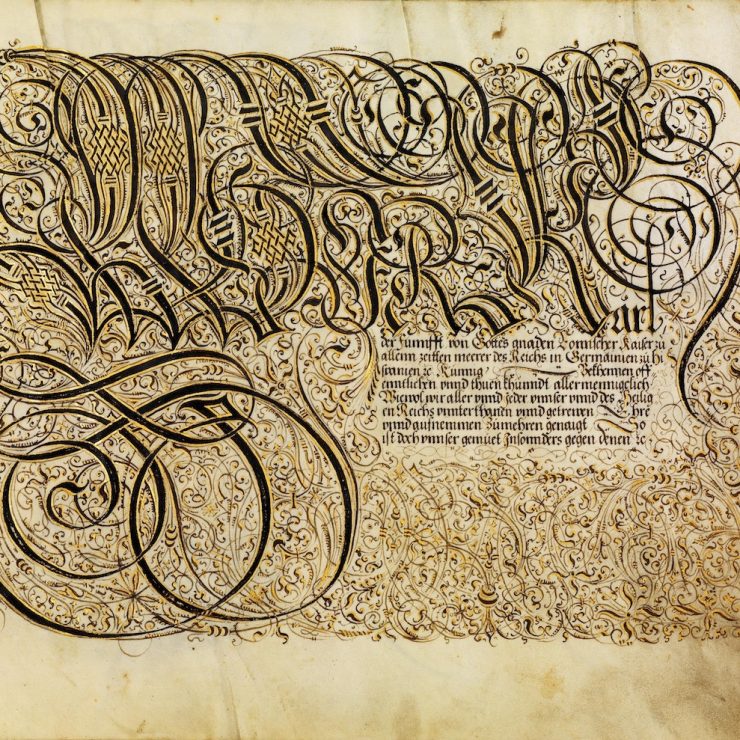 Karl
der funnfft von Gottes gnaden Romischer Kaiser zu
allenn zeitten meerer des Reichs in Germainien zu hi
spanien ꝛc Kunnig Bekhennen off
ennlichen vnnd thuen khunndt allermennigclich
Wiewol wir aller vnnd jeder vnnser vnnd des Heilig
en Reichs vnnterthanen vnnd getrewen Ehre
vnnd aufnemmen zumehren genaigt So
ist doch vnnser gemuet Insonnders gegen denen ꝛc